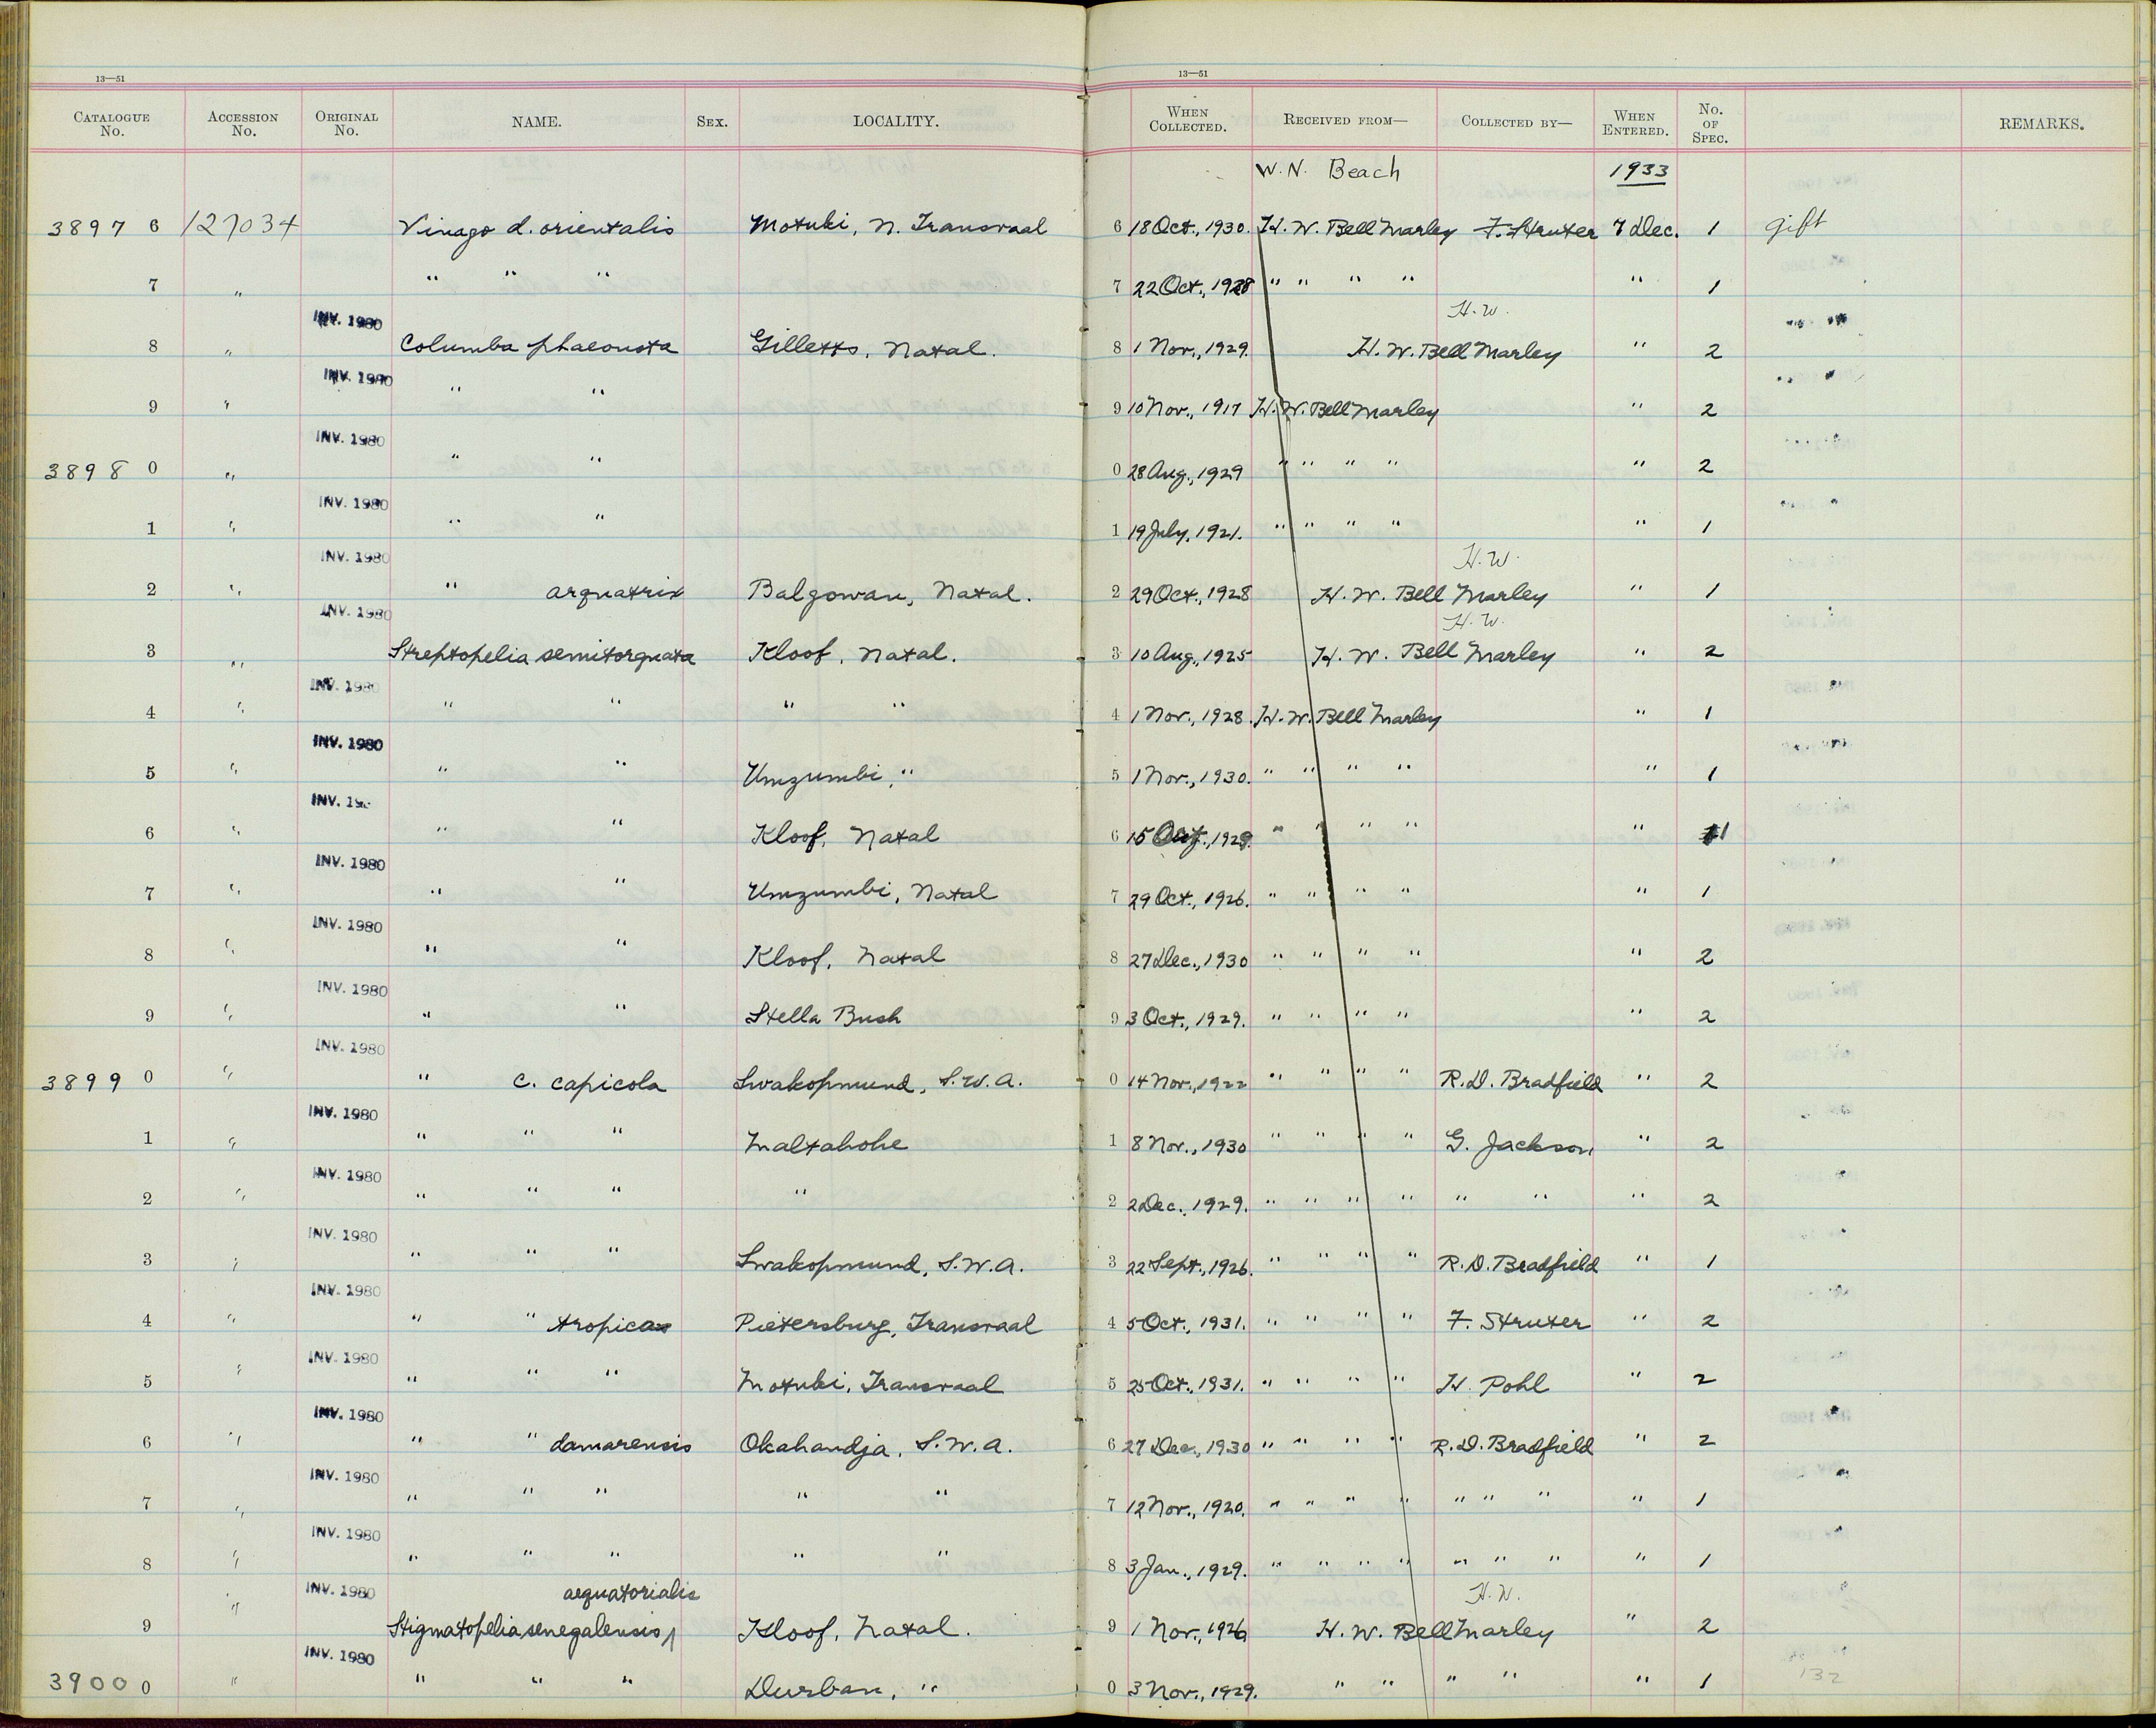 13—51
13—51
CATALOGUE No. ACCESSION No. ORIGINAL No. NAME. SEX. LOCALITY. WHEN COLLECTED. RECEIVED FROM— COLLECTED BY— WHEN ENTERED. No. OF SPEC. REMARKS.
W.N. Beach 1933
3897 6 127034 Vinago d. orientalis Motubi, N. Transvaal 6 18 Oct., 1930. H. W. Bell Marley F. Struter 7 Dec. 1 gift
7 " " " " 7 22 Oct., 1928 " " " " " 1
INV. 1980 H.W.
8 " Columba phaeonota Gilletts, Natal. 8 1 Nov., 1929. H. W. Bell Marley " 2
INV. 1980
9 " " " 9 10 Nov., 1917 H. W. Bell Marley " 2
INV. 1980
3898 0 " " " 0 28 Aug., 1929 " " " " " 2
INV. 1980
1 " " " 1 19 July, 1921. " " " " " 1
INV. 1980 H.W.
2 " " arquatrix Balgowan, Natal. 2 29 Oct., 1928 H. W. Bell Marley " 1
INV. 1980 H.W.
3 " Streptopelia semitorquata Kloof, Natal. 3 10 Aug., 1925 H. W. Bell Marley " 2
INV. 1980
4 " " " " " 4 1 Nov., 1928. H. W. Bell Marley " 1
INV. 1980
5 " " " Umzumbi, " 5 1 Nov., 1930. " " " " " 1
INV. 19
6 " " " Kloof, Natal 6 15 1929. " " " " " 1
INV. 1980
7 " " " Umzumbi, Natal 7 29 Oct., 1926. " " " " " 1
INV. 1980
8 " " " Kloof, Natal 8 27 Dec., 1930 " " " " " 2
INV. 1980
9 " " " Stella Bush 9 3 Oct., 1929. " " " " " 2
INV. 1980
3899 0 " " c. capicola Swakopmund, S.W.A. 0 14 Nov., 1922 " " " " R.D. Bradfield " 2
INV. 1980
1 " " " " Maltahohe 1 8 Nov., 1930 " " " " G. Jackson " 2
INV. 1980
2 " " " " " 2 2 Dec., 1929. " " " " " " " 2
INV. 1980
3 " " " " Swakopmund, S.W.A. 3 22 Sept., 1926. " " " " R.D. Bradfield " 1
INV. 1980
4 " " " tropica Pietersburg, Transvaal 4 5 Oct., 1931. " " " " F. Struter " 2
INV. 1980
5 " " " " Motubi, Transvaal 5 25 Oct., 1931. " " " " H. Pohl " 2
INV. 1980
6 " " " damarensis Okahandja, S.W.A. 6 27 Dec., 1930 " " " " R.D. Bradfield " 2
INV. 1980
7 " " " " " " 7 12 Nov., 1920. " " " " " " " " 1
INV. 1980
8 " " " " " " 8 3 Jan., 1929. " " " " " " " " 1
" INV. 1980 aequatorialis H.W.
9 Stigmatopelia senegalensis Kloof, Natal. 9 1 Nov., 1926 H. W. Bell Marley " 2
INV. 1980
3900 0 " " " " Durban, " 0 3 Nov., 1929. " " " " " 1 132